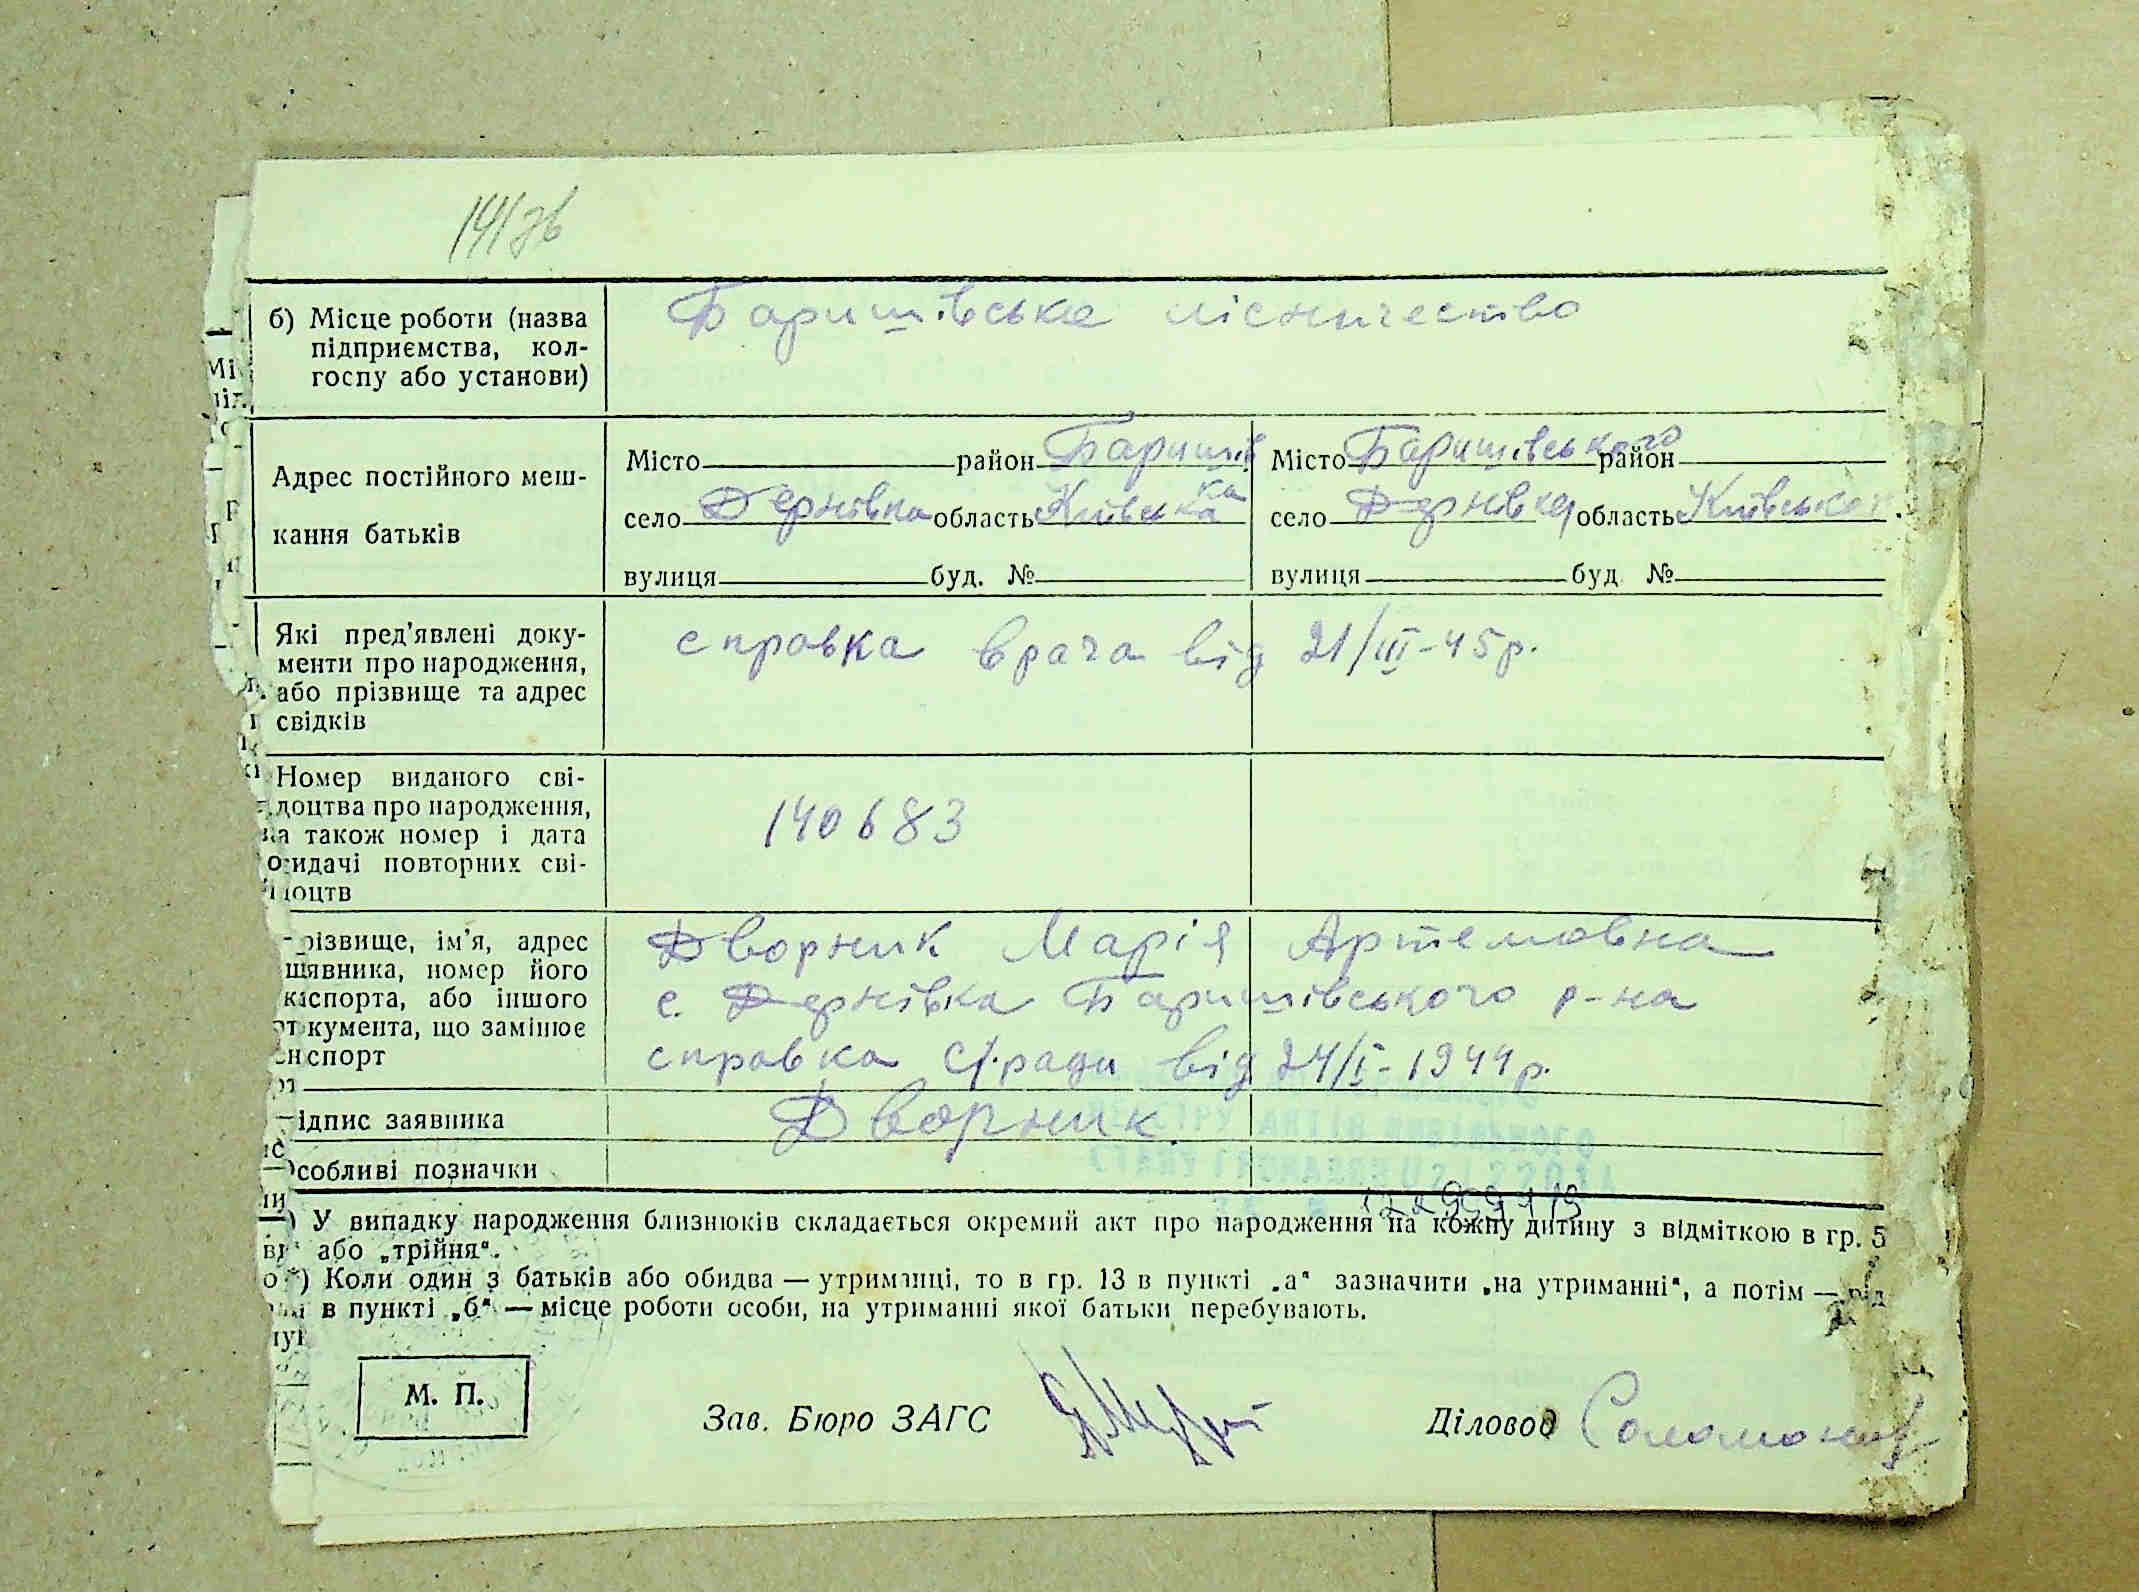 б) Місце роботи (назва
підприємства, кол-
госпу або установи)
Баришівське лісничество
Адрес постійного меш-
кання батьків
Місто район Баришів
ка
село Дернівка область Київська
вулиця буд. №
Місто Баришівського район
село Дернівка область Київської
вулиця буд №
Які пред’явлені доку-
менти про народження,
або прізвище та адрес
свідків
справка врача від 21/III-45р.
Номер виданого сві-
доцтва про народження,
а також номер і дата
видачі повторних сві-
доцтв
140683
різвище, ім’я, адрес
явника, номер його
спорта, або іншого
кумента, що замінює
спорт
Дворник Марія Артемовна
с. Дернівка Баришівського р-на
справка с/ради від 24/I-1944р.
ідпис заявника
Дворник
собливі позначки
) У випадку народження близнюків складається окремий акт про народження на кожну дитину з відміткою в гр. 5
або „трійня“.
*) Коли один з батьків або обидва — утриманці, то в гр. 13 в пункті „а“ зазначити „на утриманні“, а потім —
в пункті „б“ — місце роботи особи, на утриманні якої батьки перебувають.
М. П.
Зав. Бюро ЗАГС
Діловод